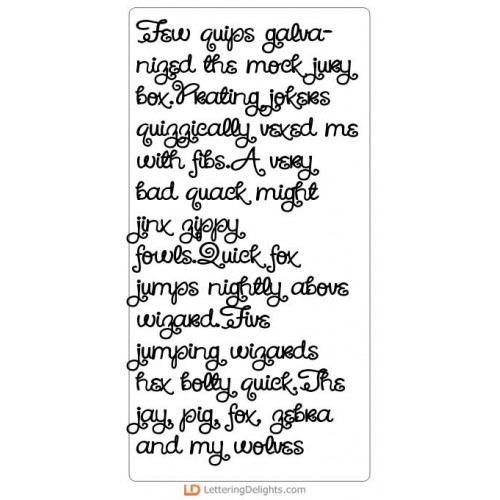 Few quips galva-
nized the mock jury
box.Prating jokers
quizzically vexed me
with fibs.A very
bad quack might
jinx zippy
fowls.Quick fox
jumps nightly above
wizard.Five
jumping wizards
hex bolty quick.The
jay, pig, fox, zebra
and my wolves
LD LetteringDelights.com